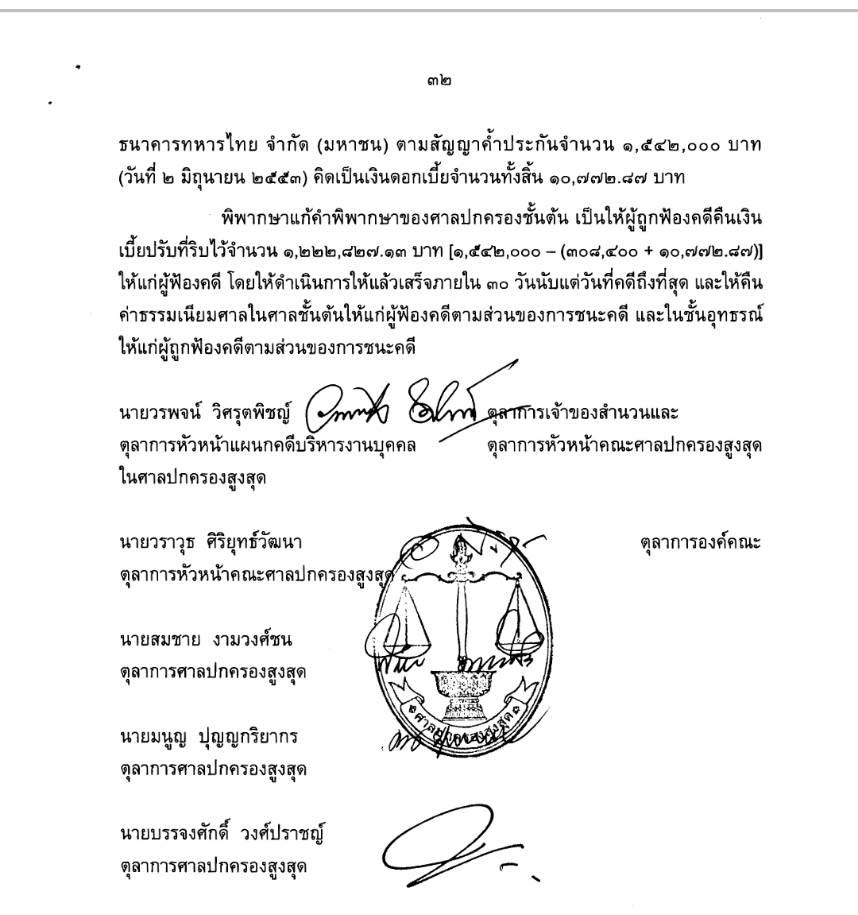 ๓๒
ธนาคารทหารไทย จำกัด (มหาชน) ตามสัญญาค้ำประกันจำนวน ๑,๕๔๒,๐๐๐ บาท
(วันที่ ๒ มิถุนายน ๒๕๕๓) คิดเป็นเงินดอกเบี้ยจำนวนทั้งสิ้น ๑๐,๗๗๒.๘๗ บาท
พิพากษาแก้คำพิพากษาของศาลปกครองชั้นต้น เป็นให้ผู้ถูกฟ้องคดีคืนเงิน
เบี้ยปรับที่ริบไว้จำนวน ๑,๒๒๒,๘๒๗.๑๓ บาท [๑,๕๔๒,๐๐๐ – (๓๐๘,๔๐๐ + ๑๐,๗๗๒.๘๗)]
ให้แก่ผู้ฟ้องคดี โดยให้ดำเนินการให้แล้วเสร็จภายใน ๓๐ วันนับแต่วันที่คดีถึงที่สุด และให้คืน
ค่าธรรมเนียมศาลในศาลชั้นต้นให้แก่ผู้ฟ้องคดีตามส่วนของการชนะคดี และในชั้นอุทธรณ์
ให้แก่ผู้ถูกฟ้องคดีตามส่วนของการชนะคดี
นายวรพจน์ วิศรุตพิชญ์ ตุลาการเจ้าของสำนวนและ
ตุลาการหัวหน้าแผนกคดีบริหารงานบุคคล ตุลาการหัวหน้าคณะศาลปกครองสูงสุด
ในศาลปกครองสูงสุด
นายวราวุธ ศิริยุทธ์วัฒนา ตุลาการองค์คณะ
ตุลาการหัวหน้าคณะศาลปกครองสูงสุด
นายสมชาย งามวงศ์ชน
ตุลาการศาลปกครองสูงสุด
นายมนูญ ปุญญกริยากร
ตุลาการศาลปกครองสูงสุด
ศาลปกครองสูงสุด
นายบรรจงศักดิ์ วงศ์ปราชญ์
ตุลาการศาลปกครองสูงสุด